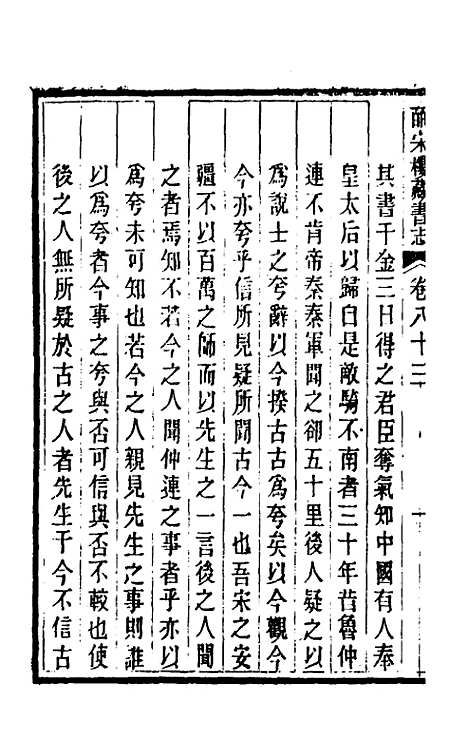 皕宋樓藏書志
卷八十三
十
其書千金三日得之君臣奪氣知中國有人奉
皇太后以歸自是敵騎不南者三十年昔魯仲
連不肯帝秦秦軍聞之卻五十里後人疑之以
爲說士之夸辭以今揆古古爲夸矣以今觀今
今亦夸乎信所見疑所聞古今一也吾宋之安
疆不以百萬之師而以先生之一言後之人聞
之者焉知不若今之人聞仲連之事者乎亦以
爲夸未可知也若今之人親見先生之事則誰
以爲夸者今事之夸與否可信與否不較也使
後之人無所疑於古之人者先生于今不信古